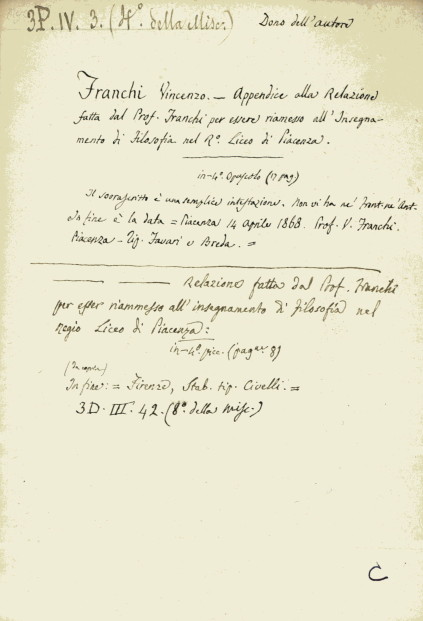 3P. IV. 3. (4º. della Misc.) Dono dell'autore
Franchi Vincenzo. — Appendice alla Relazione
fatta dal Prof. Franchi per essere riamesso all'Insegna-
mento di Filosofia nel Rº. Liceo di Piacenza.
in-4º. Opuscolo (17 pag)
Il soprascritto è una semplice intestazione. Non vi ha nè Front. nè Ant.
In fine è la data = Piacenza 14 Aprile 1868. Prof. V. Franchi.
Piacenza - Tip. Favari e Breda. =
Relazione fatta dal Prof. Franchi
per esser riammesso all'insegnamento di filosofia nel
regio Liceo di Piacenza:
in-4º. picc. (pagᵉ. 8)
(In copia)
In fine: = Firenze, Stab. tip. Civelli. =
3D. III. 42. (8º. della Misc.)
C